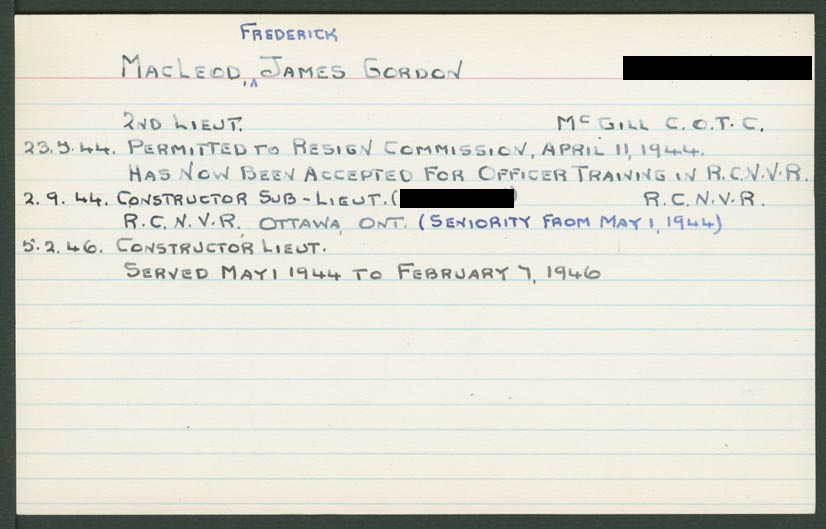 FREDERICK
MACLEOD, ^ JAMES GORDON
2ND LIEUT. MCGILL C.O.T.C.
23.5.44. PERMITTED TO RESIGN COMMISSION, APRIL 11, 1944.
HAS NOW BEEN ACCEPTED FOR OFFICER TRAINING IN R.C.N.V.R.
2.9.44. CONSTRUCTOR SUB-LIEUT. ( ) R.C.N.V.R.
R.C.N.V.R. OTTAWA, ONT. (SENIORITY FROM MAY 1, 1944)
5.2.46. CONSTRUCTOR LIEUT.
SERVED MAY 1 1944 TO FEBRUARY 7, 1946